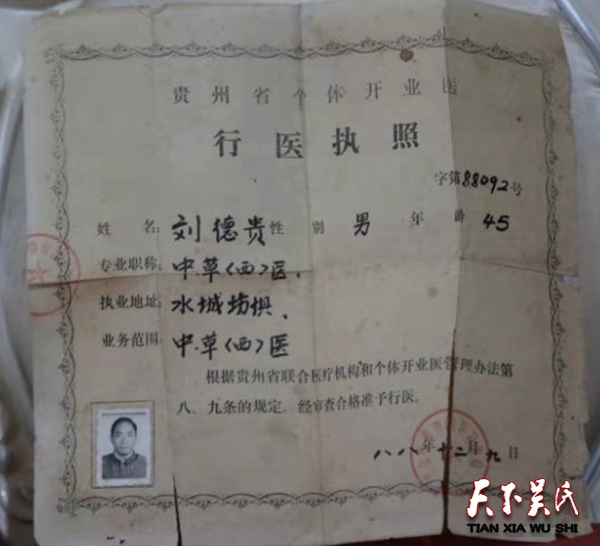 贵州省个体开业医
行医执照
字第88092号
姓名:刘德贵性别男年龄45
专业职称:中.草〈西〉医.
执业地址:水城坊惧.
业务范围:中.草〈西〉医
根据贵州省联合医疗机构和个体开业医管理办法第
八、九条的规定,经审查合格准予行医。
八八年十二月九日
天下吴氏
TIAN XIA WU SHI